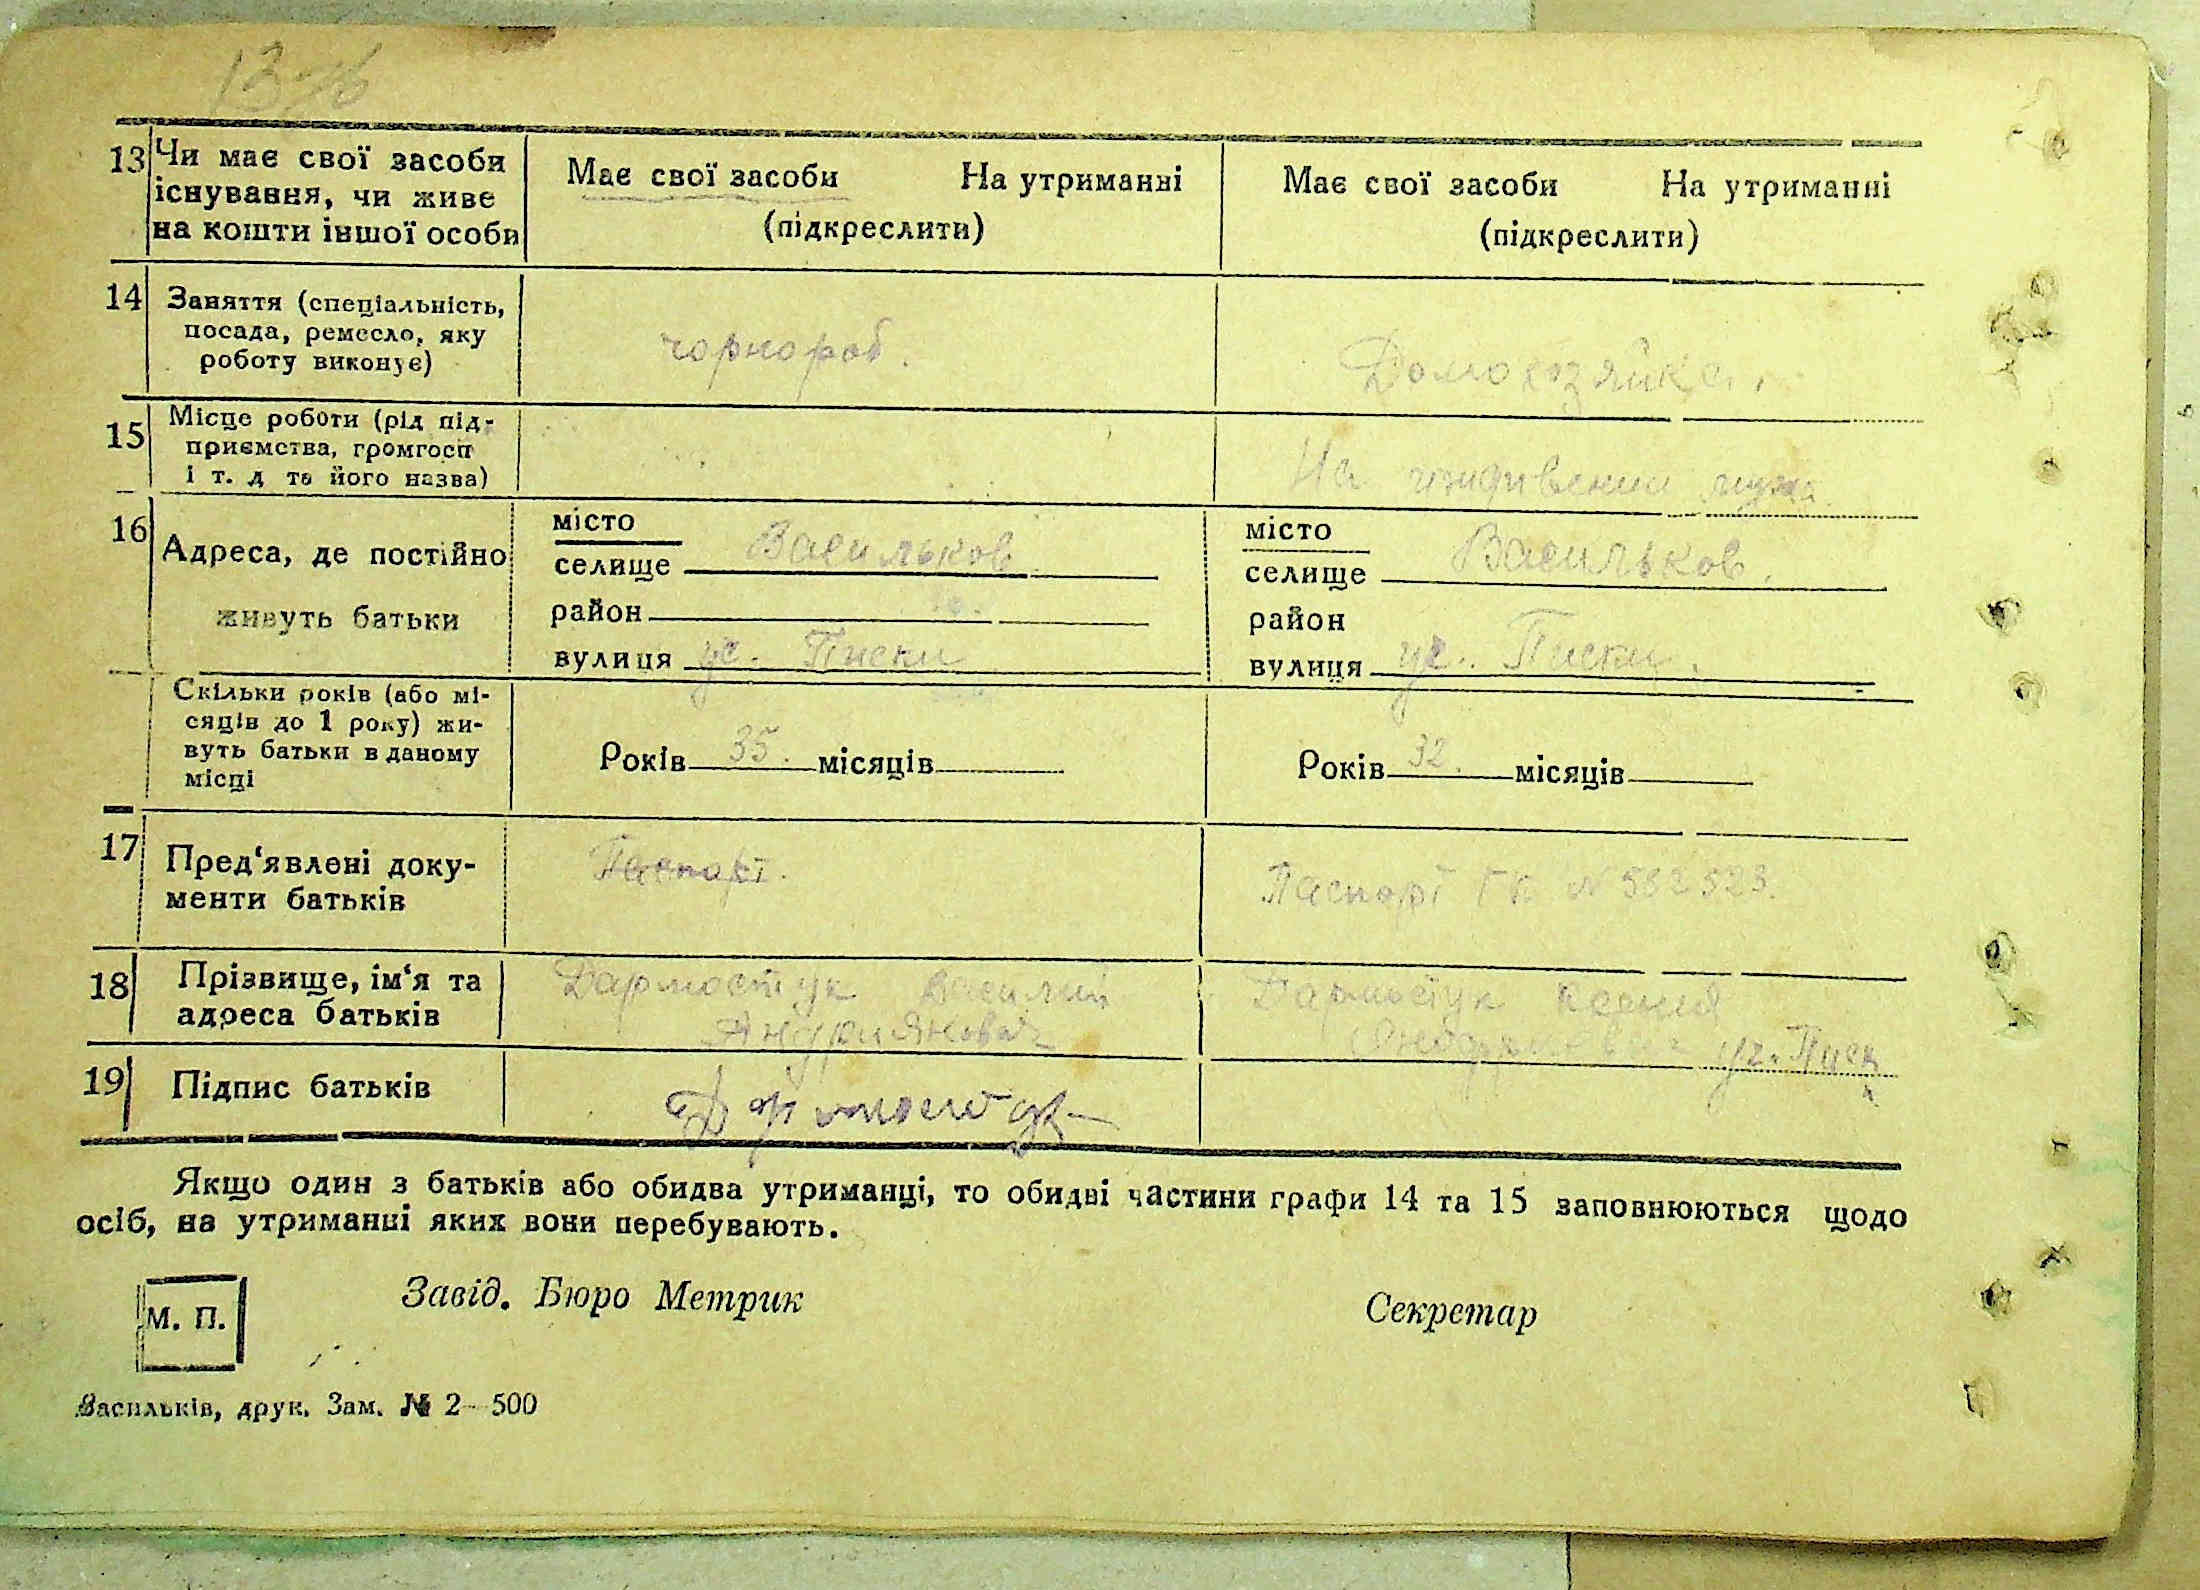 13
Чи має свої засоби
існування, чи живе
на кошти іншої особи
Має свої засоби На утриманні
(підкреслити)
Має свої засоби На утриманні
(підкреслити)
14 Заняття (спеціальність,
посада, ремесло, яку
роботу виконує)
чорнороб.
Домохозяйка.
15 Місце роботи (рід під-
приємства, громгосп
і т. д та його назва)
На иждивении мужа.
16 Адреса, де постійно
живуть батьки
місто
селище Васильков
район
вулиця ул.Писки
місто
селище Васильков.
район
вулиця ул. Писки.
Скільки років (або мі-
сяців до 1 року) жи-
вуть батьки в даному
місці
Років 35. місяців
Років 32. місяців
17 Пред‘явлені доку-
менти батьків
Паспорт.
Паспорт № 532523.
18 Прізвище, ім‘я та
адреса батьків
Дармостук Василий
Андриянович
Дармостук Ксения
ул. Писк
19 Підпис батьків
Дармостук
Якщо один з батьків або обидва утриманці, то обидві частини графи 14 та 15 заповнюються щодо
осіб, на утриманні яких вони перебувають.
М. П.
Завід. Бюро Метрик
Секретар
Васильків, друк. Зам. № 2—500